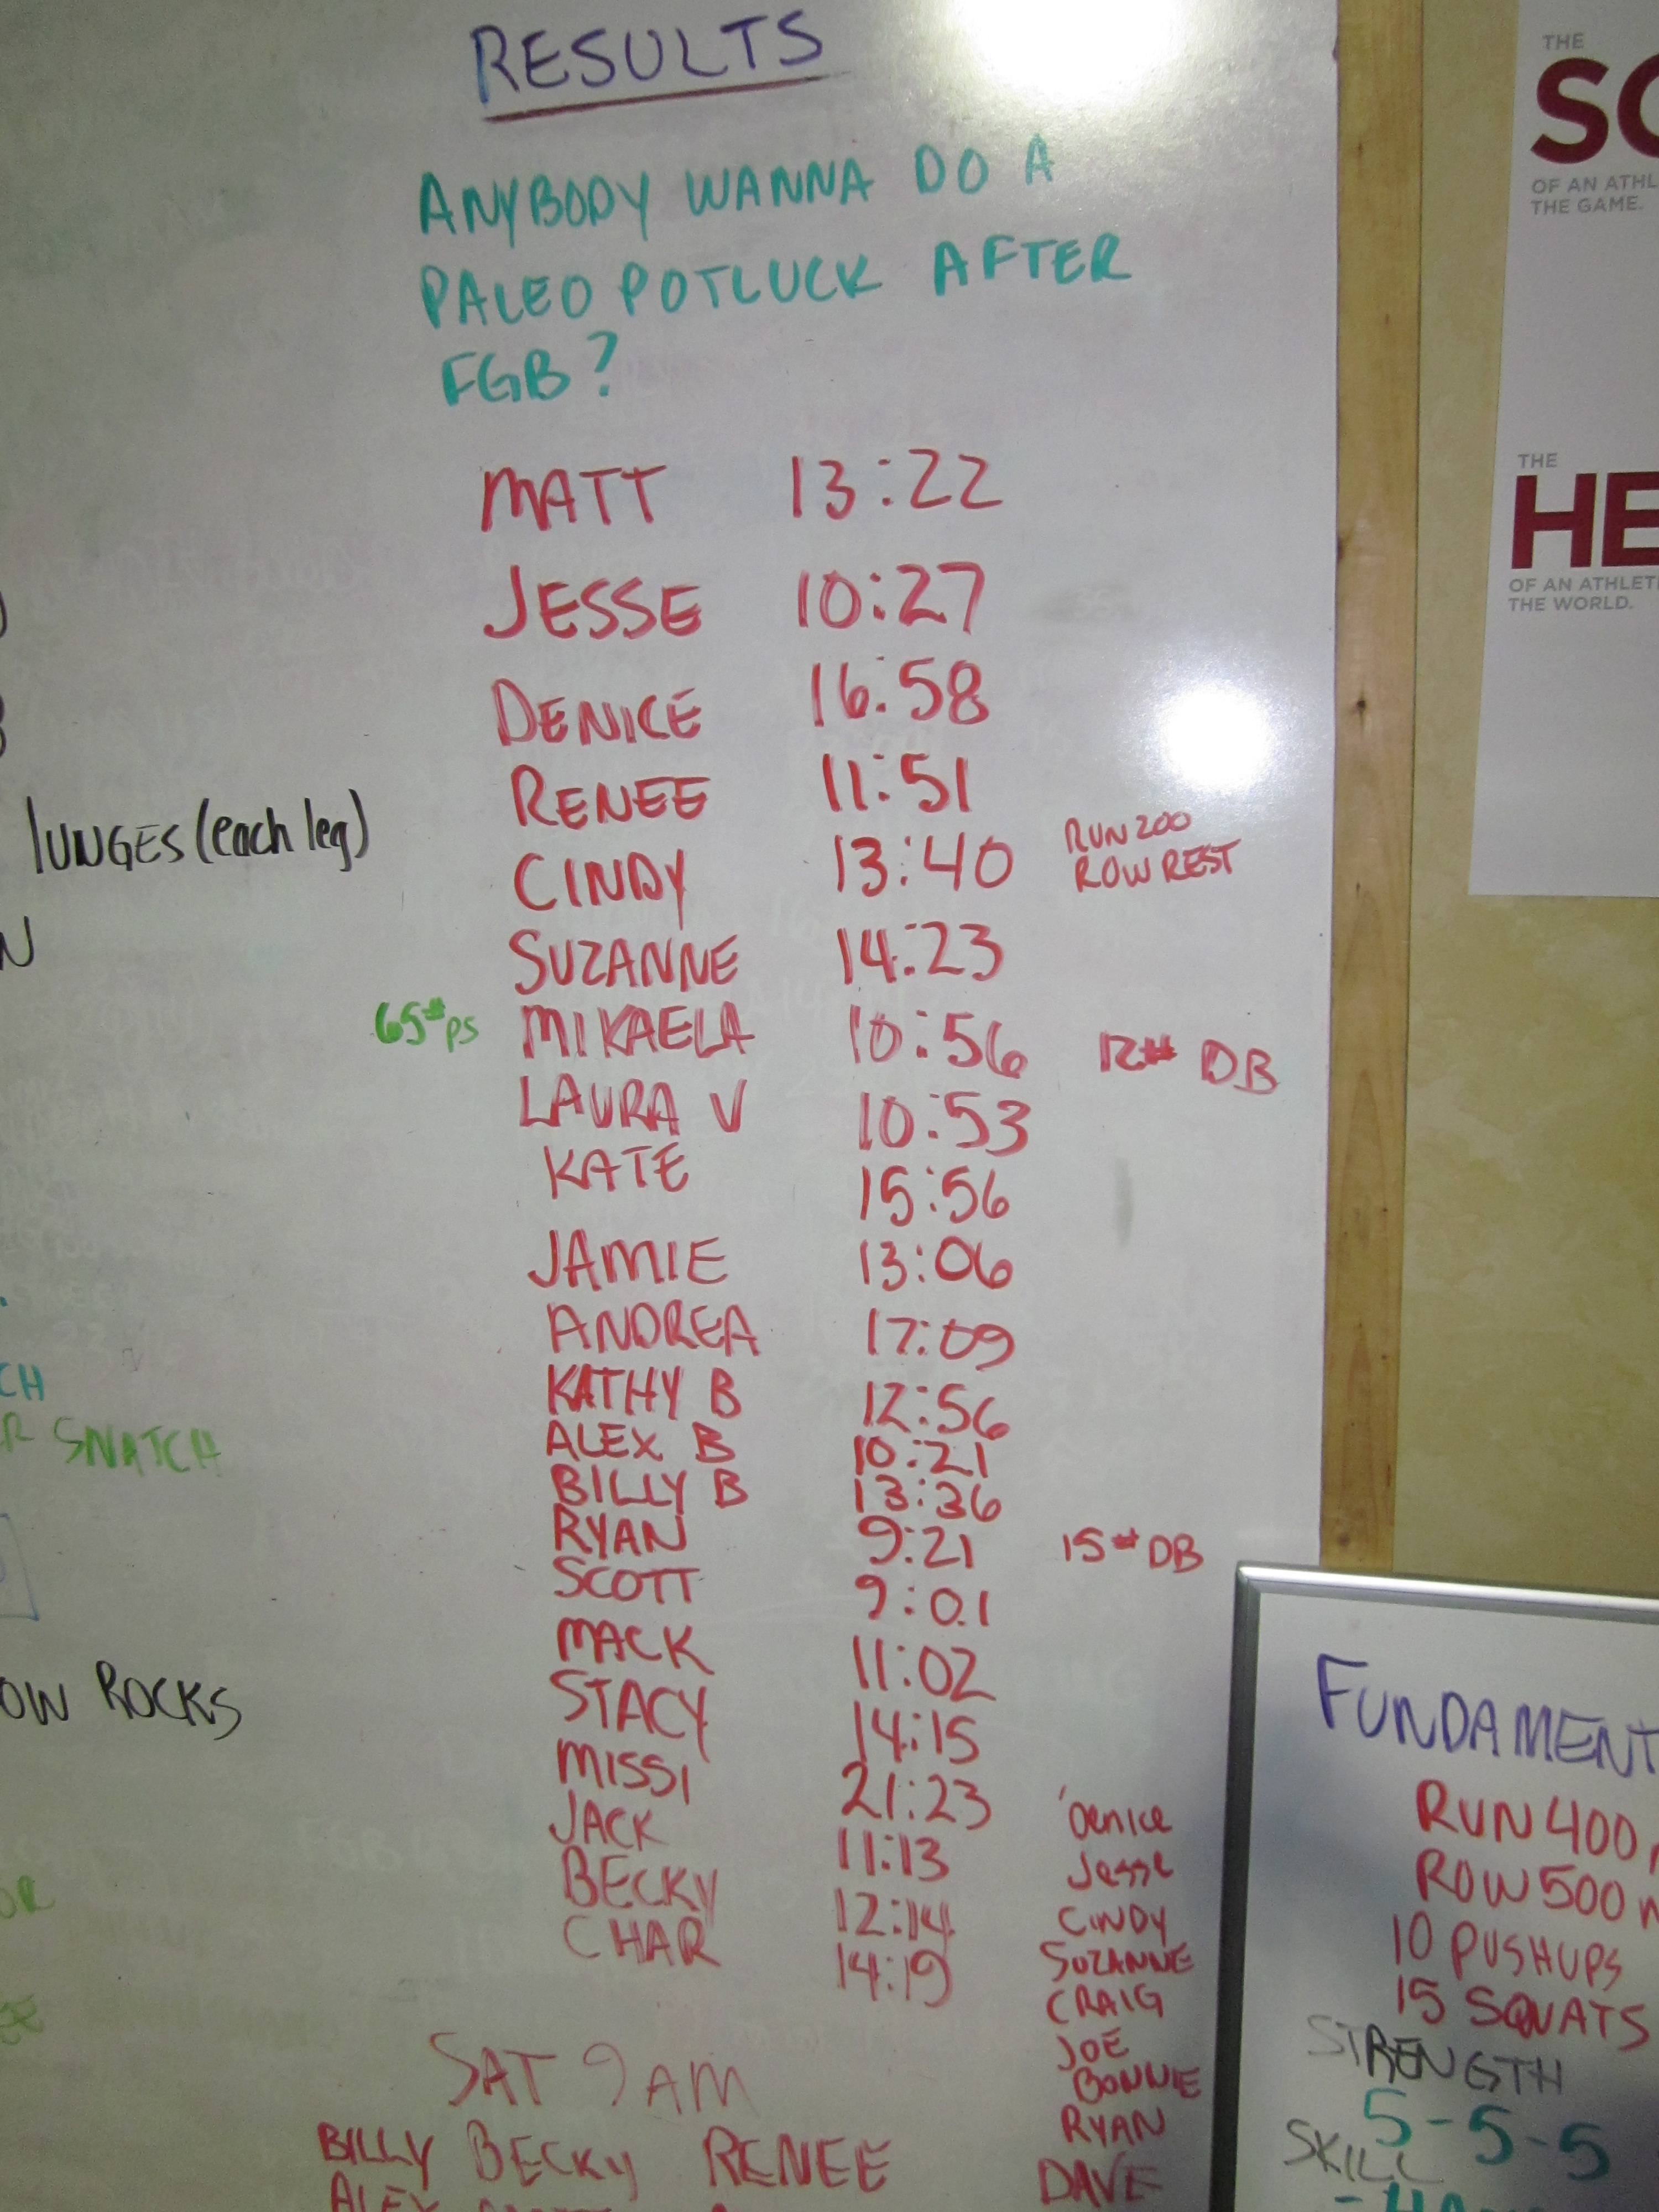 RESULTS
ANYBODY WANNA DO A
PALEO POTLUCK AFTER
FGB?
MATT 13:22
JESSE 10:27
DENICE 16:58
RENEE 11:51
CINDY 13:40 RUN 200
ROW REST
SUZANNE 14:23
65# PS MIKAELA 10:56 12# DB
LAURA V 10:53
KATE 15:56
JAMIE 13:06
ANDREA 17:09
KATHY B 12:56
ALEX B 10:21
BILLY B 13:36
RYAN 9:21 15# DB
SCOTT 9:01
MACK 11:02
STACY 14:15
MISSI 21:23
JACK 11:13
BECKY 12:14
CHAR 14:19
SAT 9AM
BILLY BECKY RENEE
ALEX
Denice
Jesse
CINDY
SUZANNE
CRAIG
JOE
BONNIE
RYAN
DAVE
lUNGES (each leg)
N
CH
R SNATCH
OW ROCKS
OR
THE
SC
OF AN ATHL
THE GAME.
THE
HE
OF AN ATHLET
THE WORLD.
FUNDAMENT
RUN 400
ROW 500 m
10 PUSHUPS
15 SQUATS
STRENGTH
5-5-5
SKILL